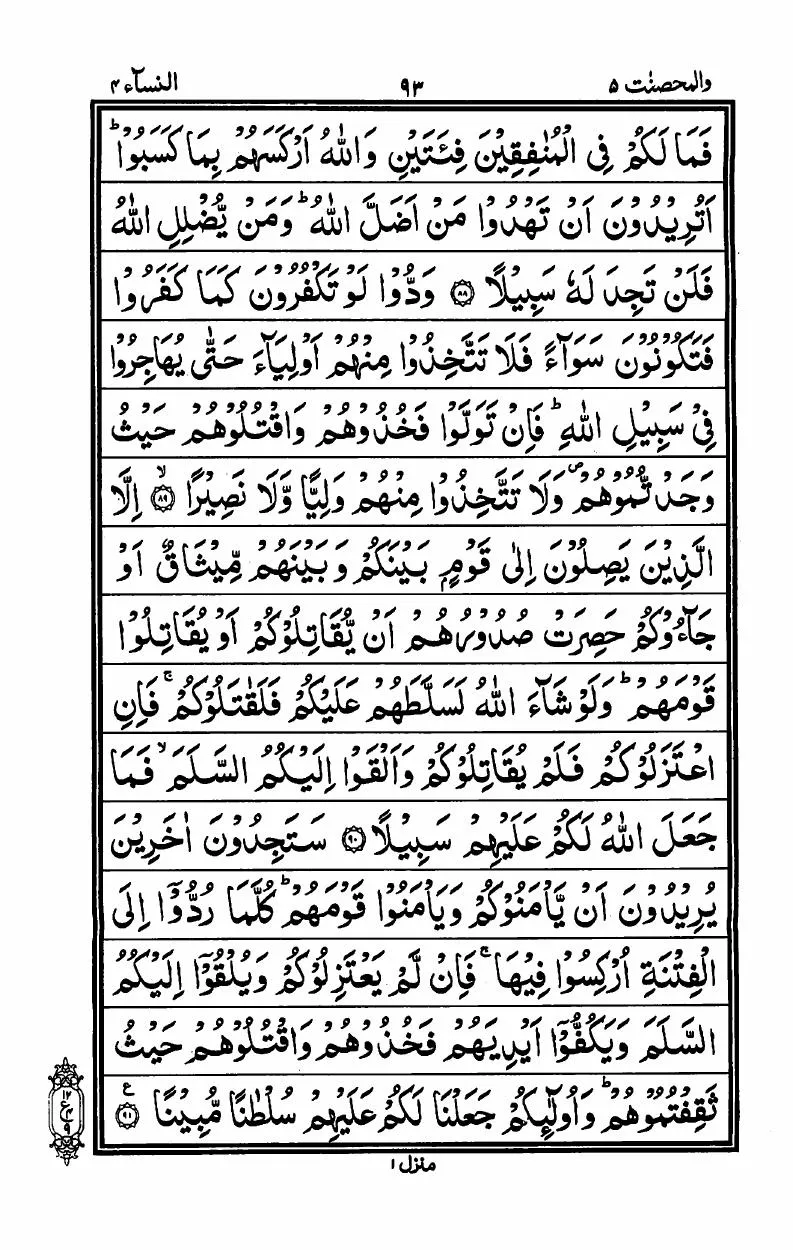 والمحصنٰت ۵ ۹۳ النسآء ۴
فَمَا لَكُمْ فِی الْمُنٰفِقِیْنَ فِئَتَیْنِ وَاللّٰهُ اَرْكَسَهُمْ بِمَا كَسَبُوْا ؕ
اَتُرِیْدُوْنَ اَنْ تَهْدُوْا مَنْ اَضَلَّ اللّٰهُ ؕ وَمَنْ یُّضْلِلِ اللّٰهُ
فَلَنْ تَجِدَ لَهٗ سَبِیْلًا ﴿۸۸﴾ وَدُّوْا لَوْ تَكْفُرُوْنَ كَمَا كَفَرُوْا
فَتَكُوْنُوْنَ سَوَآءً فَلَا تَتَّخِذُوْا مِنْهُمْ اَوْلِیَآءَ حَتّٰی یُهَاجِرُوْا
فِیْ سَبِیْلِ اللّٰهِ ؕ فَاِنْ تَوَلَّوْا فَخُذُوْهُمْ وَاقْتُلُوْهُمْ حَیْثُ
وَجَدْتُّمُوْهُمْ ۪ وَلَا تَتَّخِذُوْا مِنْهُمْ وَلِیًّا وَّلَا نَصِیْرًا ﴿۸۹﴾ ۙ اِلَّا
الَّذِیْنَ یَصِلُوْنَ اِلٰی قَوْمٍۭ بَیْنَكُمْ وَبَیْنَهُمْ مِّیْثَاقٌ اَوْ
جَآءُوْكُمْ حَصِرَتْ صُدُوْرُهُمْ اَنْ یُّقَاتِلُوْكُمْ اَوْ یُقَاتِلُوْا
قَوْمَهُمْ ؕ وَلَوْ شَآءَ اللّٰهُ لَسَلَّطَهُمْ عَلَیْكُمْ فَلَقٰتَلُوْكُمْ ۚ فَاِنِ
اعْتَزَلُوْكُمْ فَلَمْ یُقَاتِلُوْكُمْ وَاَلْقَوْا اِلَیْكُمُ السَّلَمَ ۙ فَمَا
جَعَلَ اللّٰهُ لَكُمْ عَلَیْهِمْ سَبِیْلًا ﴿۹۰﴾ سَتَجِدُوْنَ اٰخَرِیْنَ
یُرِیْدُوْنَ اَنْ یَّاْمَنُوْكُمْ وَیَاْمَنُوْا قَوْمَهُمْ ؕ كُلَّمَا رُدُّوْۤا اِلَی
الْفِتْنَةِ اُرْكِسُوْا فِیْهَا ۚ فَاِنْ لَّمْ یَعْتَزِلُوْكُمْ وَیُلْقُوْۤا اِلَیْكُمُ
السَّلَمَ وَیَكُفُّوْۤا اَیْدِیَهُمْ فَخُذُوْهُمْ وَاقْتُلُوْهُمْ حَیْثُ
ثَقِفْتُمُوْهُمْ ؕ وَاُولٰٓئِكُمْ جَعَلْنَا لَكُمْ عَلَیْهِمْ سُلْطٰنًا مُّبِیْنًا ﴿۹۱﴾ ع
۱۲
ع
۴
۹
منزل ۱